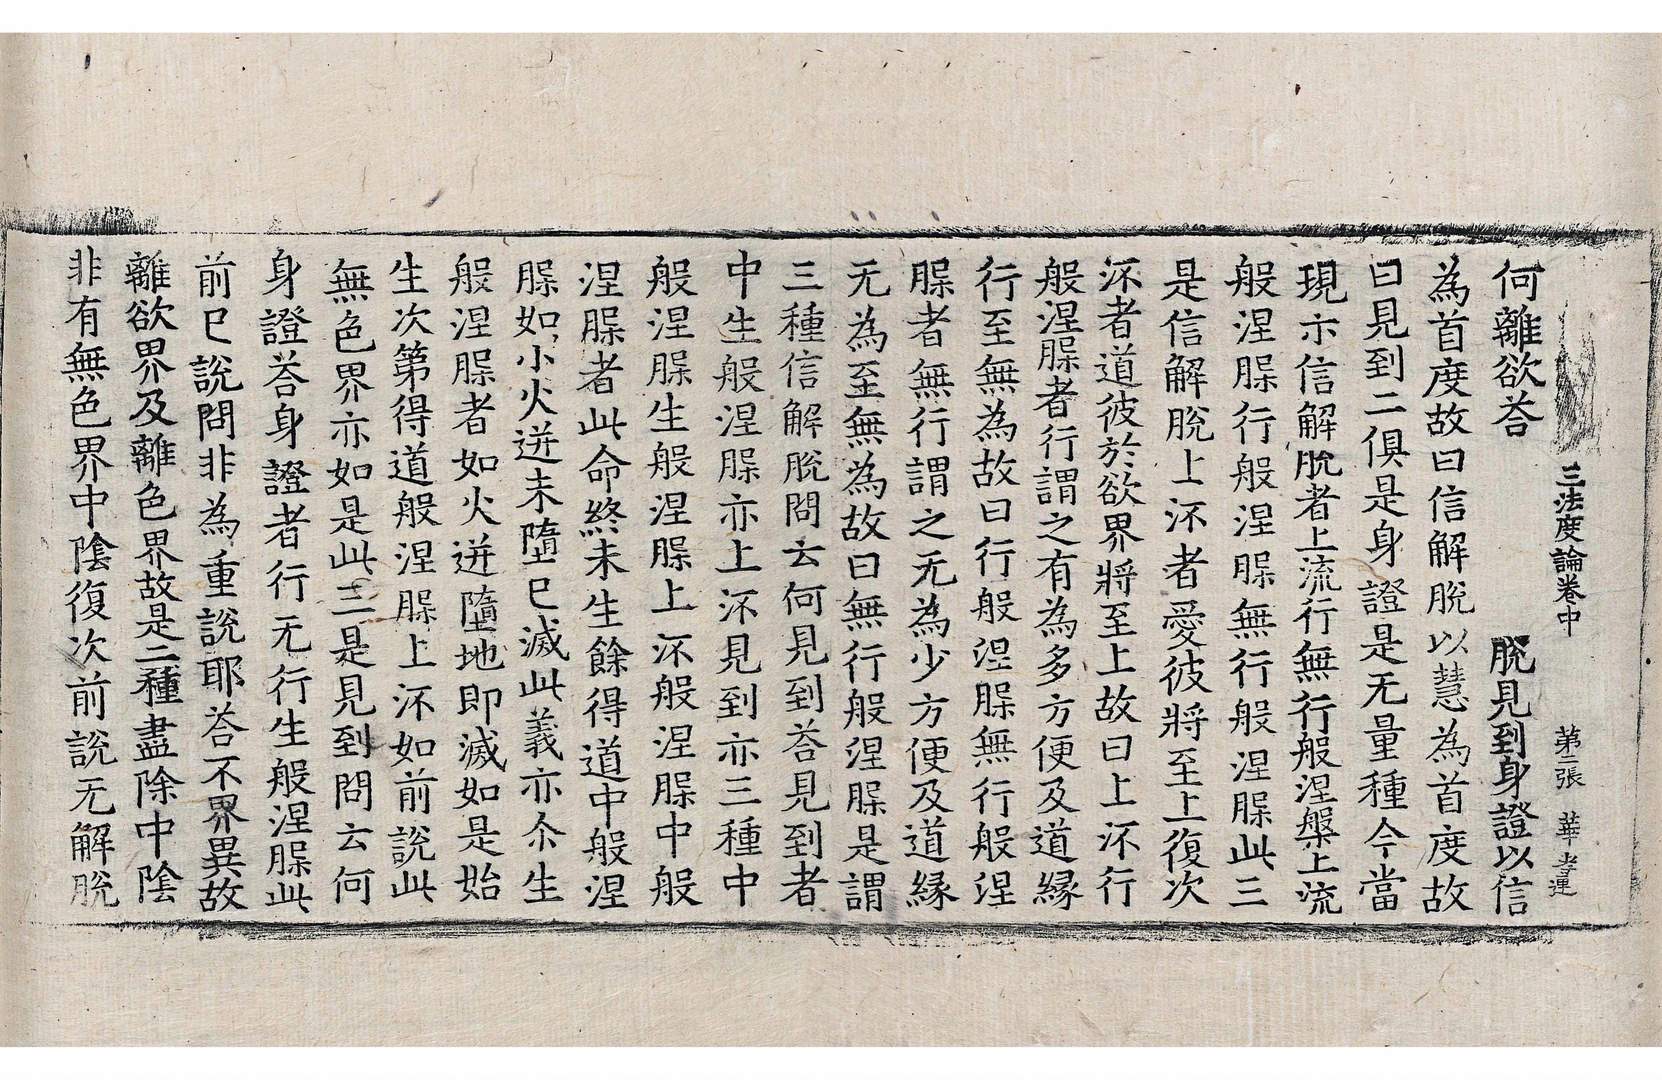 三法度論卷中 第二張 華孝運
何離欲荅 脫見到身證以信
為首度故曰信解脫以慧為首度故
曰見到二俱是身證是无量種今當
現示信解脫者上流行無行般涅槃上流
般涅㮈行般涅㮈無行般涅㮈此三
是信解脫上㳅者愛彼將至上復次
㳅者道彼於欲界將至上故曰上㳅行
般涅㮈者行謂之有為多方便及道緣
行至無為故曰行般涅㮈無行般涅
㮈者無行謂之无為少方便及道緣
无為至無為故曰無行般涅㮈是謂
三種信解脫問云何見到荅見到者
中生般涅㮈亦上㳅見到亦三種中
般涅㮈生般涅㮈上㳅般涅㮈中般
涅㮈者此命終未生餘得道中般涅
㮈如小火迸未墮已滅此義亦尒生
般涅㮈者如火迸墮地即滅如是始
生次第得道般涅㮈上㳅如前說此
無色界亦如是此三是見到問云何
身證荅身證者行无行生般涅㮈此
前已說問非為重說耶荅不界異故
離欲界及離色界故是二種盡除中陰
非有無色界中陰復次前說无解脫